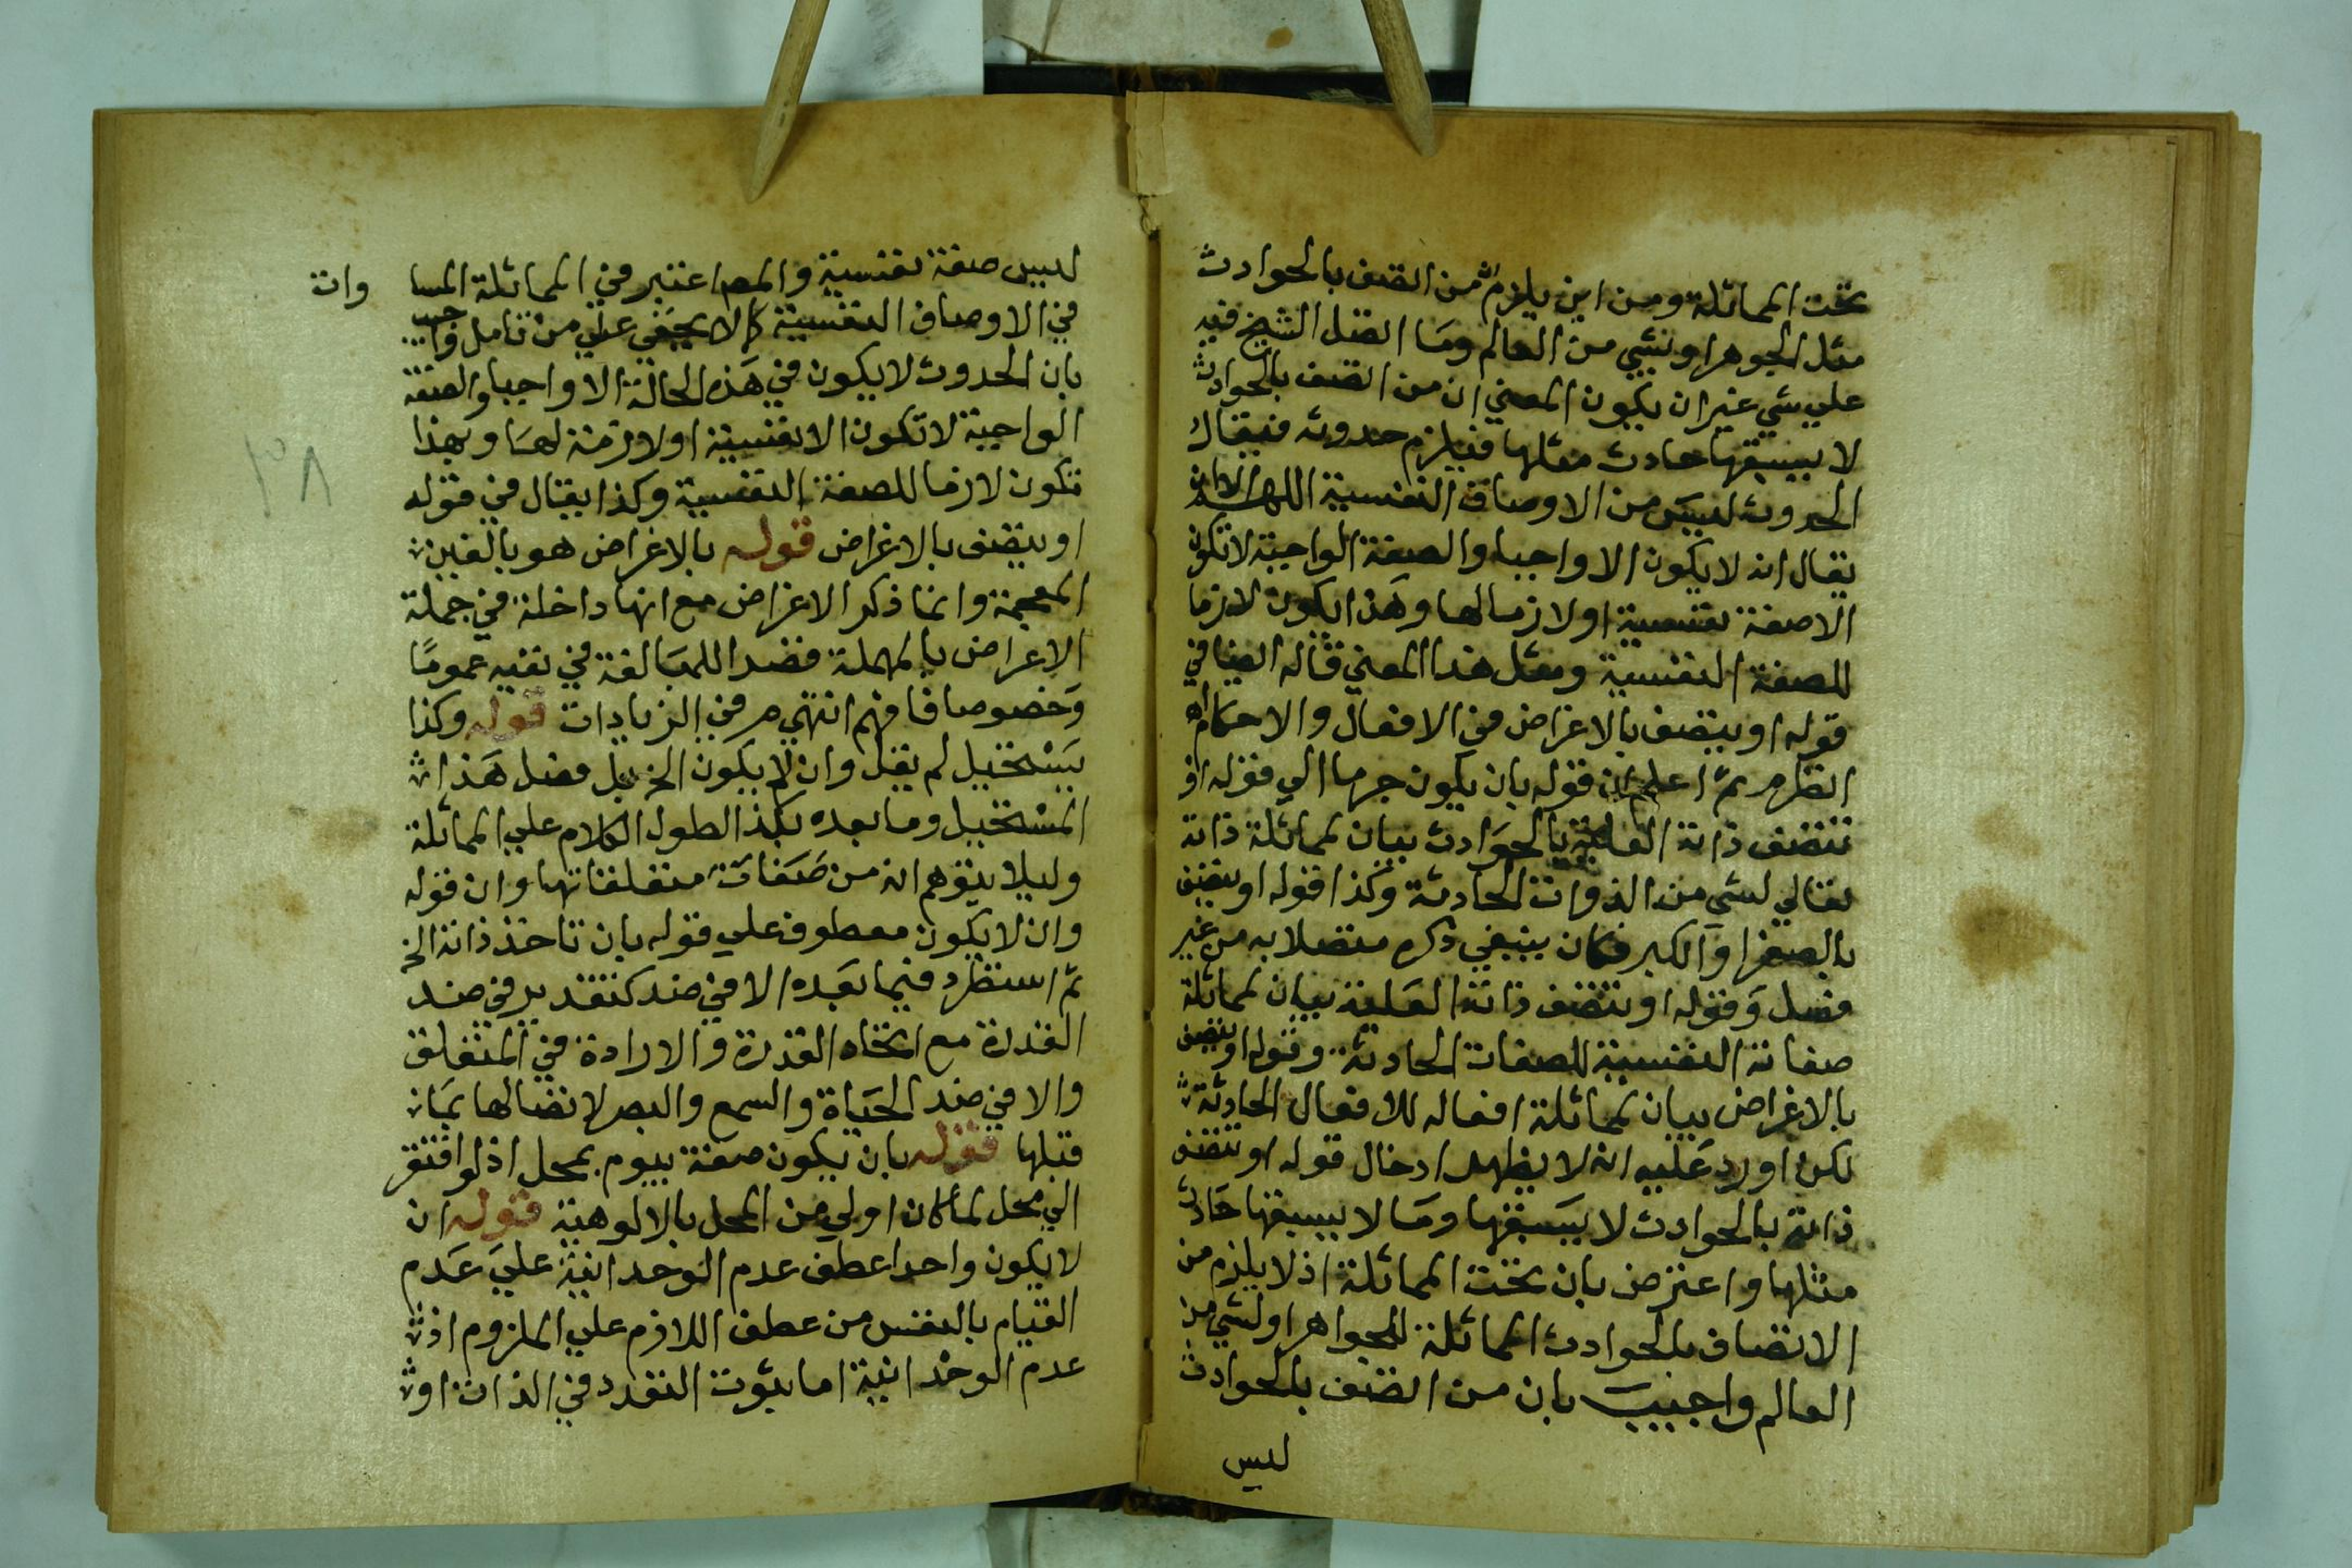 تحت المماثلة ومن اين يلزم ان من اتصف بالحوادث
مثل الجوهر او شي من العالم وما اتصل الشيخ فيه
علي شي غير ان يكون المعني ان من اتصف بالحوادث
لا يسبقها حادث مثلها فيلزم حدوثه فيقال
الحدوث ليس من الاوصاف النفسية اللهم الا ان
يقال انه لا يكون الا واجبا والصفة الواجبة لا تكون
الا صفة نفسية او لازما لها وهذا يكون لازما
للصفة النفسية ومثل هذا المعني قاله ايضا في
قوله او يتصف بالاغراض في الافعال والاحكام اه
انظره ثم اعلم ان قوله بان يكون جرما الي قوله او
تتصف ذاته العلية بالحوادث بيان لمماثلة ذاته
تعالي لشي من الذوات الحادثة وكذا قوله او يتصف
بالصغر او الكبر فكان ينبغي ذكره متصلا به من غير
فصل وقوله او تتصف ذاته العلية بيان لمماثلة
صفاته النفسية للصفات الحادثة وقوله او يتصف
بالاغراض بيان لمماثلة افعاله للافعال الحادثة
لكن اورد عليه انه لا يظهر ادخال قوله او تتصف
ذاته بالحوادث لا يسبقها وما لا يسبقها حادث
مثلها واعترض بان تحت المماثلة اذ لا يلزم من
الاتصاف بالحوادث المماثلة للجواهر او لشي من
العالم واجيب بان من اتصف بالحوادث
ليس
ليس صفة نفسية والمص اعتبر في المماثلة المسا وات
في الاوصاف النفسية كما لا يخفي علي من تامل واجيب
بان الحدوث لا يكون في هذه الحالة الا واجبا والصفة
الواجبة لا تكون الا نفسية او لازمة لها وبهذا
تكون لازما للصفة النفسية وكذا يقال في قوله
او يتصف بالاغراض قوله بالاغراض هو بالغين
المعجمة وانما ذكر الاغراض مع انها داخلة في جملة
الاعراض بالمهملة قصدا للمبالغة في نفيه عموما
وخصوصا فافهم انتهي مر في الزيادات قوله وكذا
يستحيل لم يقل وان لا يكون الخ بل فصل هذا
المستحيل وما بعده بكذا لطول الكلام علي المماثلة
وليلا يتوهم انه من صفات متعلقاتها وان قوله
وان لا يكون معطوف علي قوله بان تاخذ ذاته الخ
ثم استطرد فيما بعده الا في ضد كنقد ير في ضد
القدرة مع اتحاد القدرة والارادة في المتعلق
والا في ضد الحياة والسمع والبصر لاتصالها بما
قبلها قوله بان يكون صفة يقوم بمحل اذ لو افتقر
الي محل لما كان اولي من المحل بالالوهية قوله ان
لا يكون واحدا عطف عدم الوحدانية علي عدم
القيام بالنفس من عطف اللازم علي الملزوم اذ
عدم الوحدانية اما بثبوت التعدد في الذات او